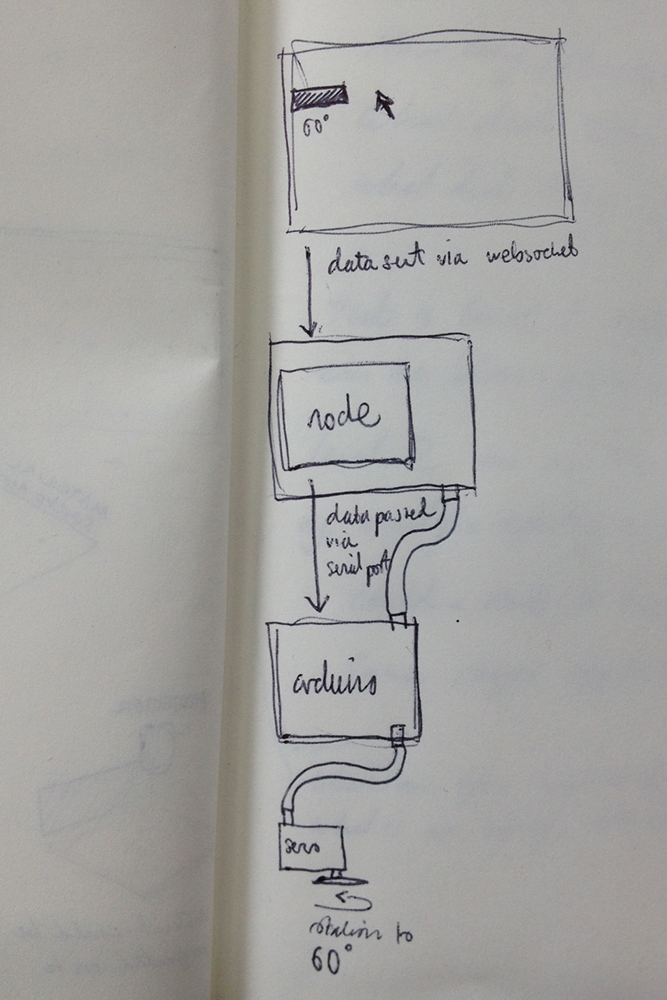 60°
data sent via websocket
node
data passed
via
serial port
arduino
servo
rotation to
60°